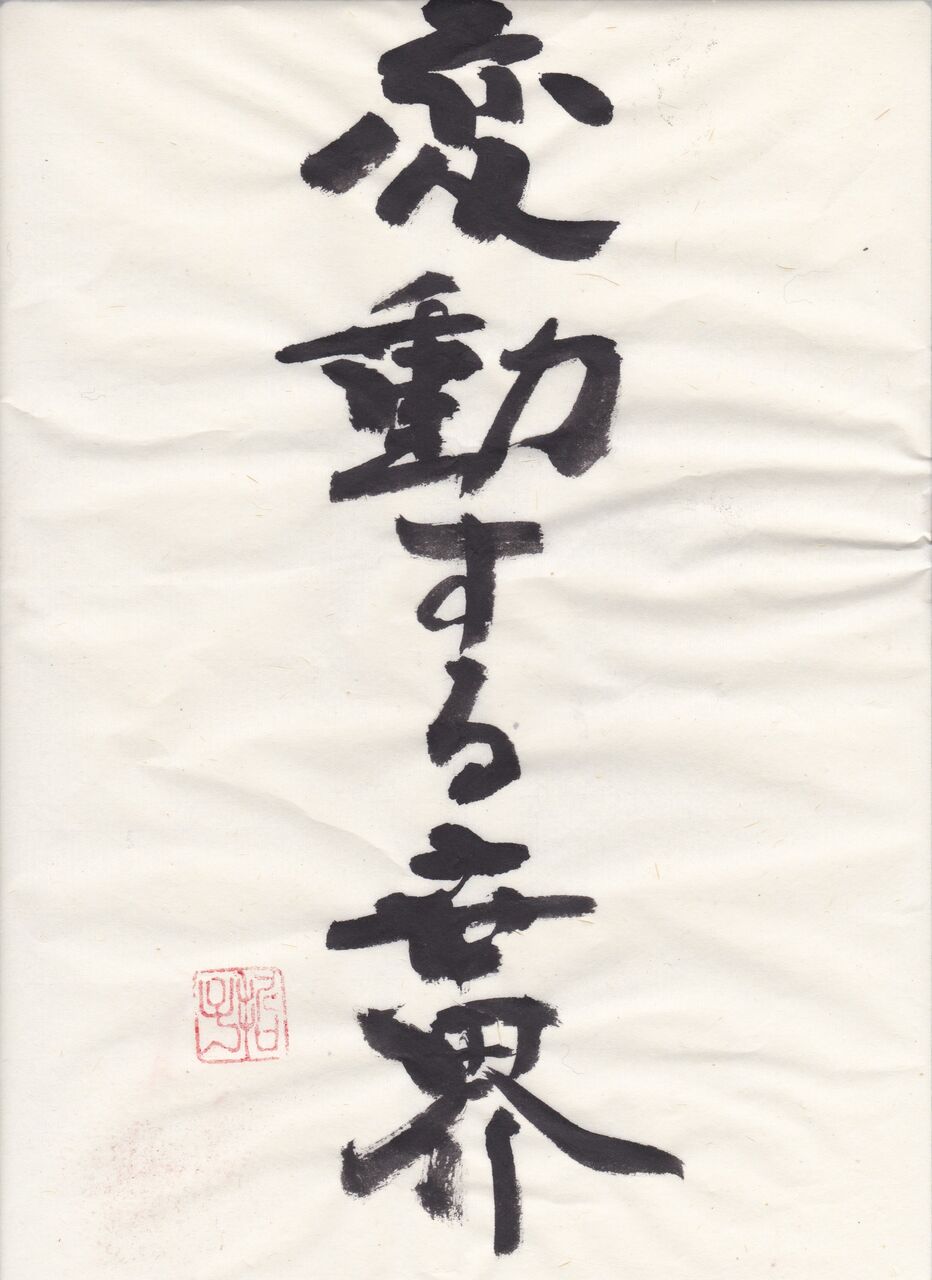 変動する世界